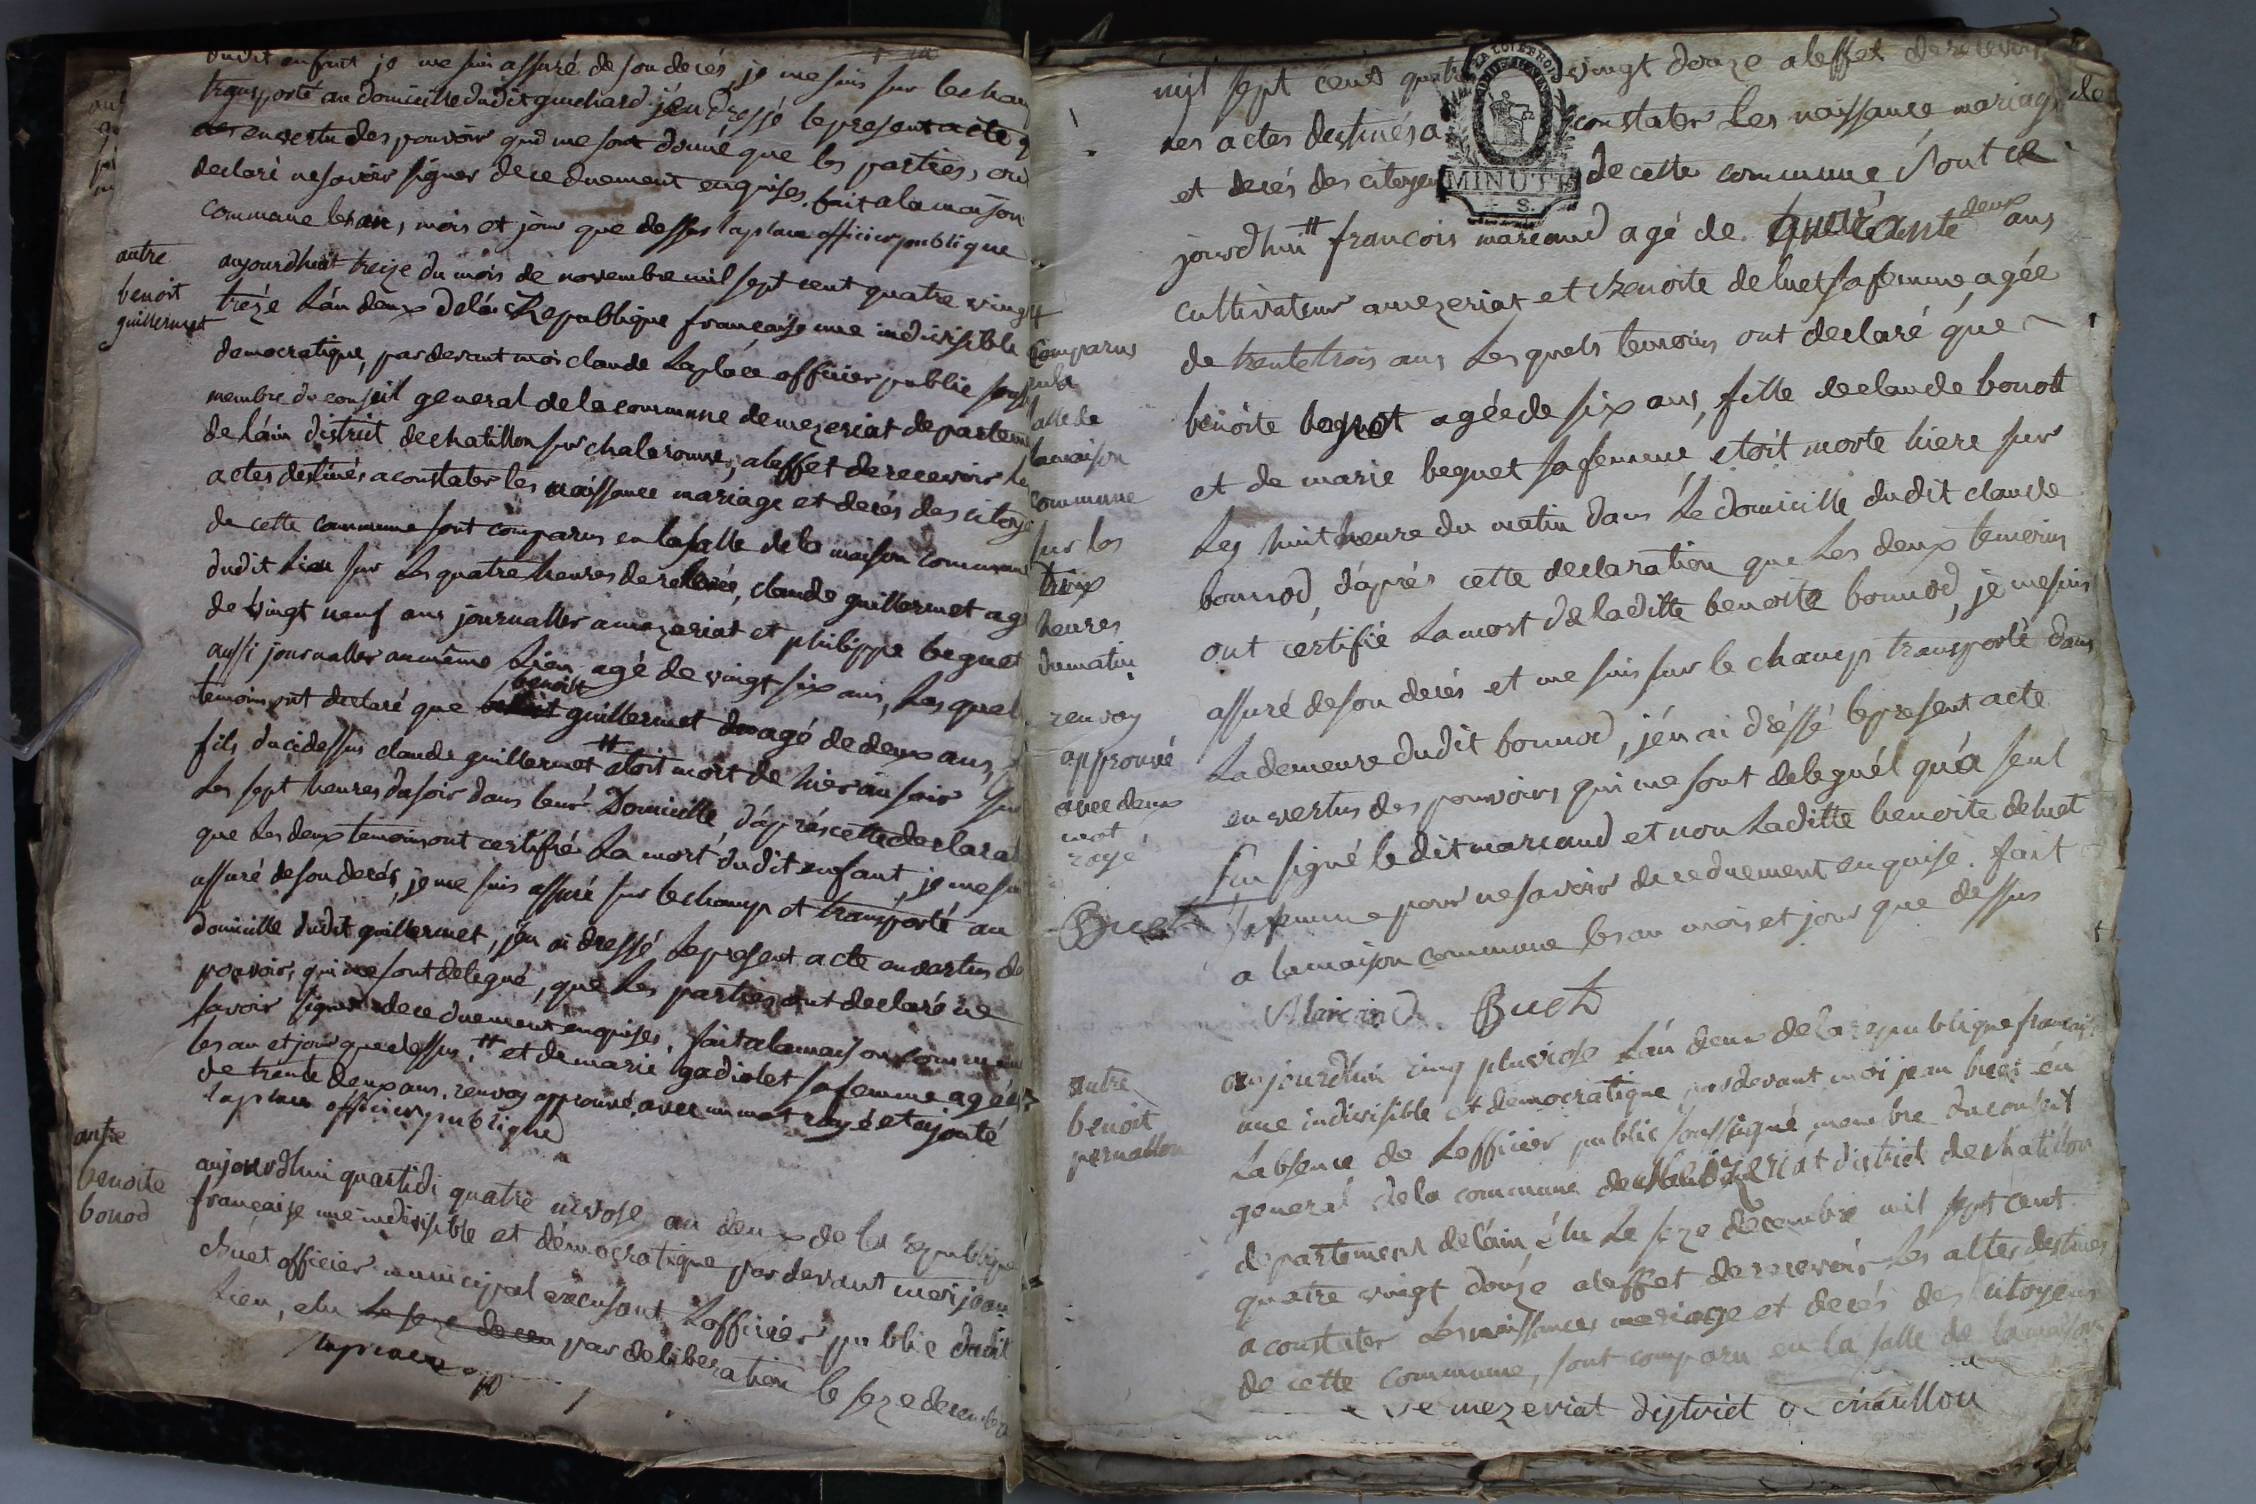 dudit enfant je me suis assuré de son decés, je me suis sur le chan
transporté au domicille dudit guichard j'en dressé le present acte
en vertu des pouvoir qui me sont donné que les parties, on
declaré ne savoir signer de ce duement enquises. fait a la maison
commune les an, mois et jour que dessus laplace officier publique
autre
benoit
guillermet
aujourdhuit treize du mois de novembre mil sept cent quatre vingt
treze L'an deux de la Republique française une indivisible
democratique, par devant moi claude Laplace officier public sous
membre du conseil general de la commune de mezeriat departem
de l'ain district de chatillon sur chalaronne, a leffet de recevoir le
actes destinés a constater les naissance mariage et decés des citoye
de cette commune sont comparus en la salle de la maison commun
dudit Lieu sur Les quatre heures de relevée, claude guillermet ag
de vingt neuf ans journallier a mezeriat et philippe beguet
aussi journallier au même Lieu agé de vingt six ans, Les quel
temoins ont declaré que benoist guillermet agé de deux ans,
fils du cidessus claude guillermet # etoit mort de hier au soir sur
Les sept heures du soir dans leur Domicille, d'aprés cette declarat
que Les deux temoins ont certifié La mort dudit enfant, je me su
assuré de son decés, je me suis assuré sur le champ et transporté au
domicille dudit guillermet, j'en ai dressé Le present acte en vertus de
pouvoir, qui me sont delegué, que Les parties ont declaré ne
savoir signer de ce duement enquises, fait a la maison commun
les an et jour que dessus, # et de marie gadiolet sa femme agée
de trente deux ans. renvoy approuvé avec un mot rayé et ajouté
laplace officier publique
autre
benoite
bonod
aujourdhui quartidi quatre nivose an deux de la republique
française une indivisible et démocratique par devant moi jean
Buet officier municipal excusant L'officier public dudit
Lieu, elu Le seze decem par deliberation le seze decembre
mil sept cent quatre vingt douze a leffet de recevoir
les actes destinés a constater Les naissance mariage
et decés des citoyen de cette commune sont ce
jourdhui # francois marcaud agé de quarante deux ans
cultivateur a mezeriat et Benoite deluet sa femme, agée
de trente trois ans Les quels temoins ont declaré que
benoite agée de six ans, fille de claude bonott
et de marie beguet sa femme, etoit morte hiere sur
Les huit heure du matin dans Le domicille dudit claude
bonnod, d'aprés cette declaration que Les deux temoins
ont certifié La mort de laditte benoite bonnod, je me suis
assuré de son decés et me suis sur le champ transporté dans
La demeure dudit bonnod, j'en ai dréssé le present acte
en vertus des pouvoirs qui me sont delegué qu'a seul
signé le dit marcaud et non Laditte benoite deluet
sa femme pour ne savoir de ce duement enquise. fait
a la maison commune les an mois et jour que dessus
Marcaud Buet
# comparus
en la
salle de
la maison
commune
sur les
heures
du matin
renvoy
approuvé
avec deux
mot
rayé
Buet
autre
benoit
aujourdhui cinq pluviose L'an deux de la republique français
une indivisible et democratique par devant moi jean buet en
L'absence de L'officier public soussigné, membre du conseil
general de la commune de mezeriat district de chatillon
departement de l'ain, élu Le seze decembre mil sept cent
quatre vingt douze a leffet de recevoir Les actes destinés
a constater Les naissances mariage et decés des citoyens
de cette commune, sont comparu en la salle de la maison
de mezeriat district de chatillon
MINUTE
S.